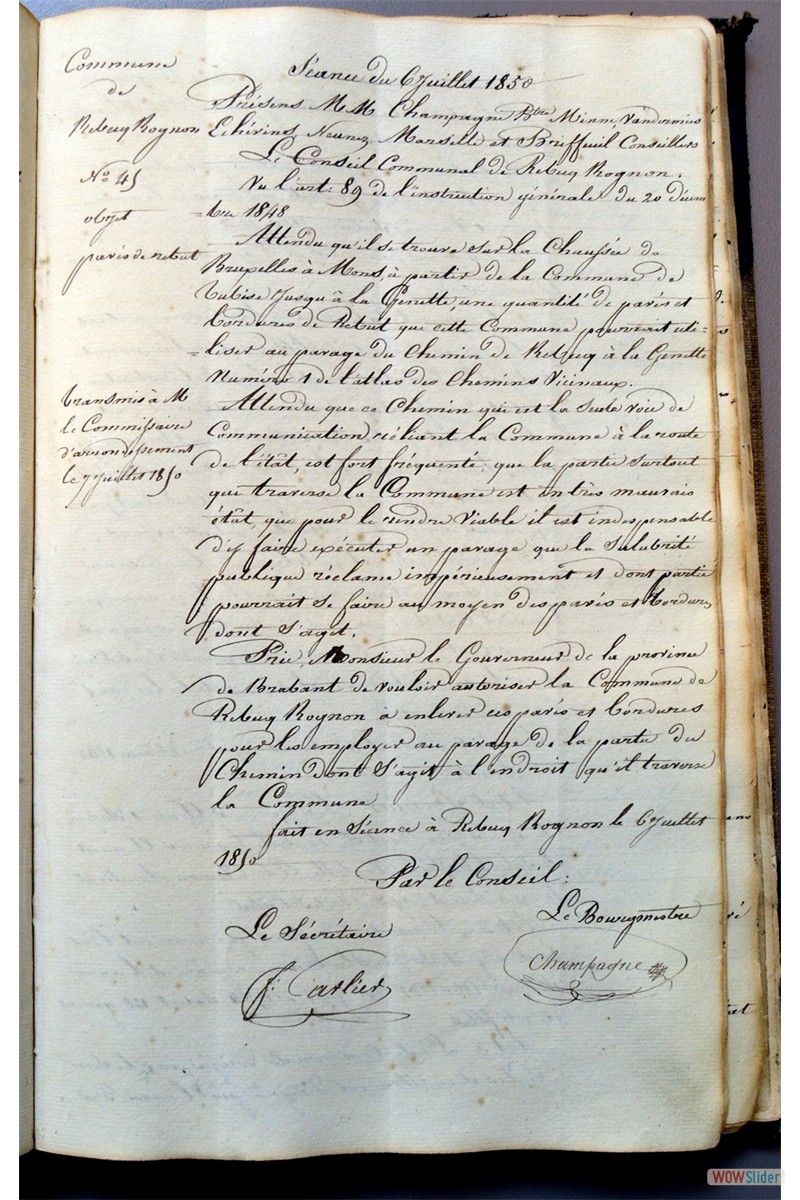 Commune
de
Rebecq Rognon
No 45
objet
pavés de rebut
transmis à M
le Commissaire
d'arrondissement
le 7 Juillet 1850
Séance du 6 Juillet 1850
Présens M M Champagne Btre Minne, Vandormius
Echévins, Neunez, Marseille et Briffeuil Conseillers
Le Conseil Communal de Rebecq Rognon.
Vu l'art: 89 de l'instruction générale du 20 décem
=bre 1848
Attendu qu'il se trouve sur la Chaussée de
Bruxelles à Mons, à partir de la Commune de
Tubise jusqu'à la Genette, une quantité de pavés et
bordures de Rebut que cette Commune pourrait uti=
=liser au pavage du Chemin de Rebecq à la Genette
Numéro 1 de l'atlas des Chemins Vicinaux.
Attendu que ce Chemin qui est la Seule voie de
Communication réliant la Commune à la route
de l'étât, est fort fréquenté; que la partie surtout
que traverse la Commune est en très mauvais
étât, que pour le rendre Viable il est indespensable
d'y faire exécuter un pavage que la Salubrité
publique réclame impérieusement et dont partie
pourrait se faire au moyen des pavés et bordures
dont s'agit.
Prie, Monsieur le Gouverneur de la province
de Brabant de vouloir autoriser la Commune de
Rebecq Rognon à enlever ces pavés et bordures
pour les employer au pavage de la partie du
Chemin dont s'agit à l'endroit qu'il traverse
la Commune
fait en Séance à Rebecq Rognon le 6 Juillet
1850
Par le Conseil:
Le Sécrétaire
Le Bourgmestre
f. Carlier
Champagne
WOWSlider